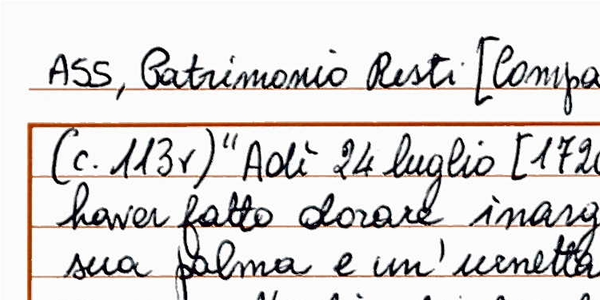 ASS, Patrimonio Resti [Compa
(c. 113r) "Adì 24 luglio [172
haver fatto dorare inarg
sua palma e un' urnetta